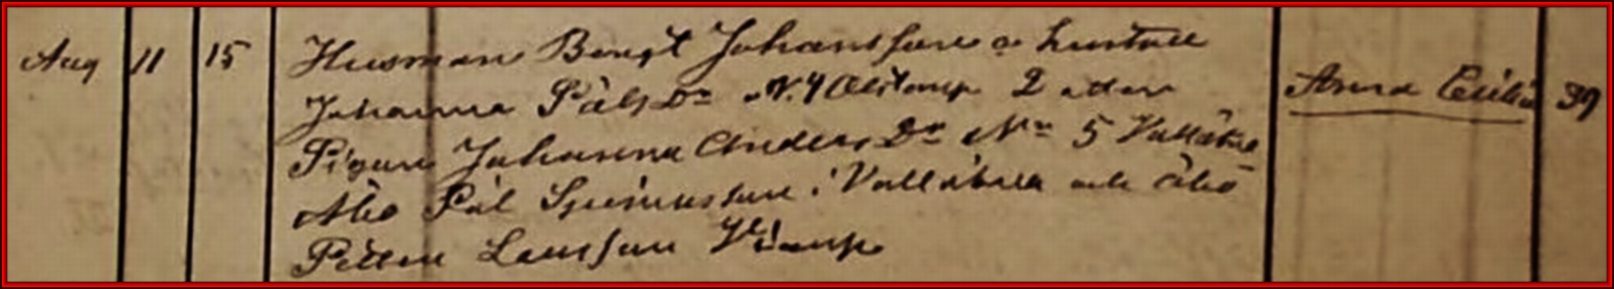 Aug 11 15 Husman Bengt Johansson o hustru
Johanna Påls Dr N. 4 2 
Pigan Johanna Anders Dr No 5 Vallåkra
Åbo Pål i Vallåkra och åbo
Petter Larsson
Anna Cecilia 39